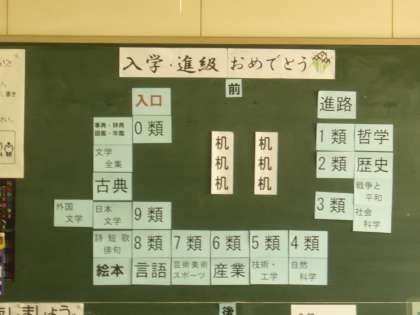 入学・進級 おめでとう
前
入口
進路
事典・辞典
図鑑・年鑑
0類
机机机
机机机
1類
哲学
文学
全集
2類
歴史
古典
戦争と
平和
外国
文学
日本
文学
9類
3類
社会
科学
詩 短 歌
俳句
8類
7類
6類
5類
4類
絵本
言語
芸術美術
スポーツ
産業
技術・
工学
自然
科学
しましょう。
後